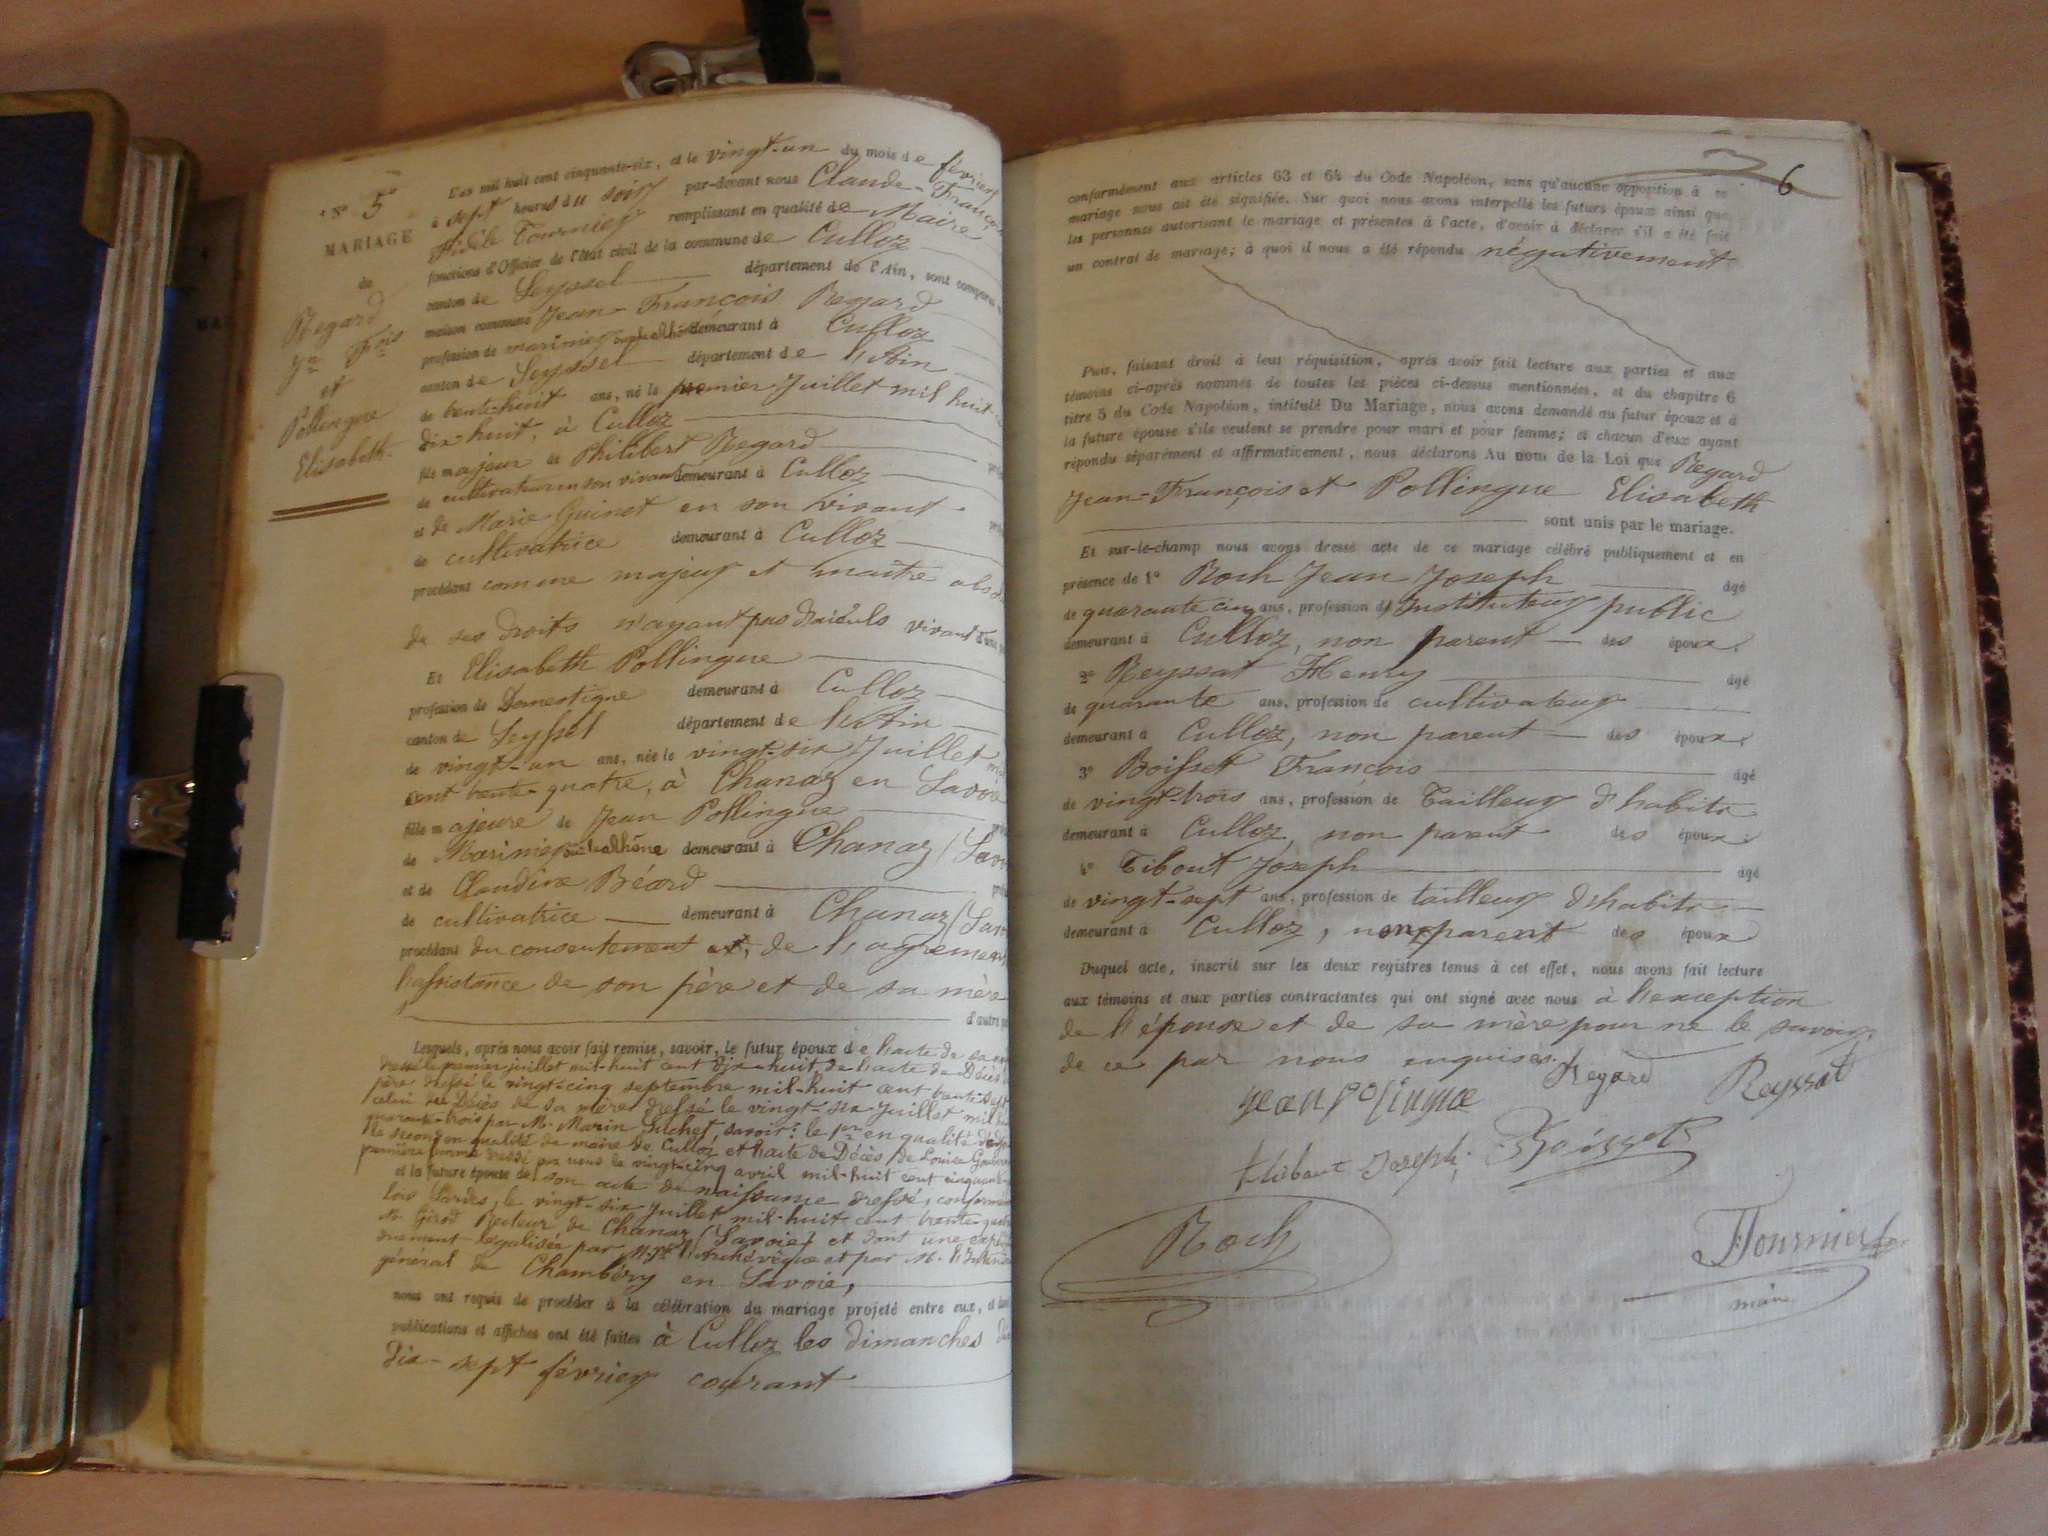 N° 5
MARIAGE
de
Regard
Jn Fois
et
Pollingue
Elisabeth
L'an mil huit cent cinquante-six, et le vingt-un du mois de février
à sept heures du soir par-devant nous Claude-François
Fidèle Tournier remplissant en qualité de Maire
fonctions d'Officier de l'état civil de la commune de Culloz
canton de Seyssel département de l'Ain, sont comparus
maison commune Jean-François Regard
profession de marinier sur le Rhône demeurant à Culloz
canton de Seyssel département de l'Ain
de trente-huit ans, né le premier Juillet mil huit
dix-huit, à Culloz
fils majeur de Philibert Regard
de cultivateur en son vivant demeurant à Culloz
et de Marie Guinet en son vivant
de cultivatrice demeurant à Culloz
procédant comme majeur et maître
de ses droits n'ayant pas d'aïeuls vivant
Et Elisabeth Pollingue
profession de Domestique demeurant à Culloz
canton de Seyssel département de l'Ain
de vingt-un ans, née le vingt-six Juillet
cent trente-quatre, à Chanaz en Savoie
fille majeure de Jean Pollingue
de Marinier sur le Rhône demeurant à Chanaz
et de Claudine Béard
de cultivatrice demeurant à Chanaz
procédant du consentement et, de l'agrément
l'assistance de son père et de sa mère
d'autre
Lesquels, après nous avoir fait remise, savoir, le futur époux de l'acte de
dressé le premier juillet mil-huit cent dix-huit, de l'acte de Décès
père dressé le vingt-cinq septembre mil-huit cent trente-sept
celui de Décès de sa mère dressé le vingt-six juillet mil
quarante-trois par M. Marin savoir: le pr en qualité
le second en qualité de maire de Culloz et l'acte de Décès de Louise
première femme dressé par nous le vingt-cinq avril mil-huit cent cinquante
et la future épouse de son acte de naissance dressé, conformément
lois Sardes, le vingt-six juillet mil-huit cent trente-quatre
M. Girod Recteur de Chanaz (Savoie) et dont une
légalisée par Mgr l'Archévêque et par M. l'Intendant
général de Chambéry en Savoie,
nous ont requis de procéder à la célébration du mariage projeté entre eux, et dont
publications et affiches ont été faites à Culloz les dimanches
dix-sept février courant
6
conformément aux articles 63 et 64 du Code Napoléon, sans qu'aucune opposition à ce
mariage nous ait été signifiée. Sur quoi nous avons interpellé les futurs époux ainsi que
les personnes autorisant le mariage et présentes à l'acte, d'avoir à déclarer s'il a été fait
un contrat de mariage; à quoi il nous a été répondu négativement
Puis, faisant droit à leur réquisition, après avoir fait lecture aux parties et aux
témoins ci-après nommés de toutes les pièces ci-dessus mentionnées, et du chapitre 6
titre 5 du Code Napoléon, intitulé Du Mariage, nous avons demandé au futur époux et à
la future épouse s'ils veulent se prendre pour mari et pour femme; et chacun d'eux ayant
répondu séparément et affirmativement, nous déclarons Au nom de la Loi que Regard
Jean-François et Pollingue Elisabeth
sont unis par le mariage.
Et sur-le-champ nous avons dressé acte de ce mariage célébré publiquement et en
présence de 1° Roch Jean Joseph âgé
de quarante cinq ans, profession d'Instituteur public
demeurant à Culloz, non parent des époux.
2° Reyssat Henry âgé
de quarante ans, profession de cultivateur
demeurant à Culloz, non parent des époux.
3° Boisset François âgé
de vingt-trois ans, profession de Tailleur d'habits
demeurant à Culloz, non parent des époux.
4° Tibout Joseph âgé
de vingt-sept ans, profession de tailleur d'habits
demeurant à Culloz, non parent des époux
Duquel acte, inscrit sur les deux registres tenus à cet effet, nous avons fait lecture
aux témoins et aux parties contractantes qui ont signé avec nous à l'exception
de l'épouse et de sa mère pour ne le savoir,
de ce par nous enquises.
Regard
Reyssat
jean polingue
thibout Joseph
Boisset
Roch
Tournier
maire